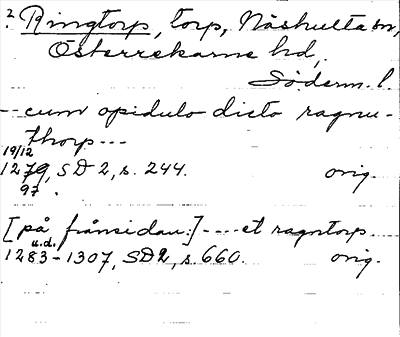 ? Ringtorp, torp, Näshulta sn,
Österrekarne hd,
Söderm. l.
-- cum opidulo dicto ragnu-
thorp ---
19/12
1279, SD 2, s. 244. orig.
97.
[på frånsidan:] ---- et ragntorp.
u.d.
1283-1307, SD2, s. 660. orig.